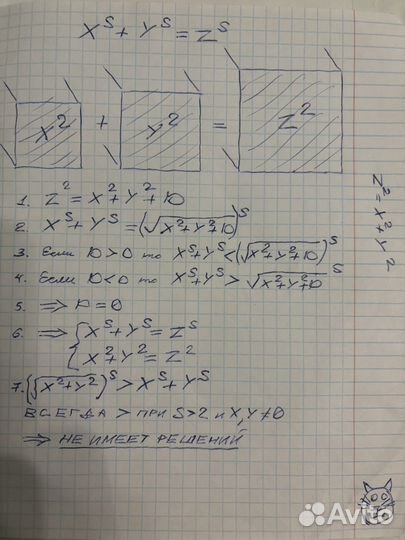 X^S + Y^S = Z^S
X^2 + Y^2 = Z^2
Z^2 = X^2 + Y^2
1. Z^2 = X^2 + Y^2 + Ю
2. X^S + Y^S = (√X^2+Y^2+Ю)^S
3. Если Ю>0 то X^S+Y^S < (√X^2+Y^2+Ю)^S
4. Если Ю<0 то X^S+Y^S > √X^2+Y^2+Ю^S
5. ⟹ Ю=0
6. ⟹ { X^S+Y^S = Z^S
{ X^2+Y^2 = Z^2
7. (√X^2+Y^2)^S > X^S+Y^S
ВСЕГДА > ПРИ S>2 и X,Y≠0
⟹ НЕ ИМЕЕТ РЕШЕНИЙ
Avito